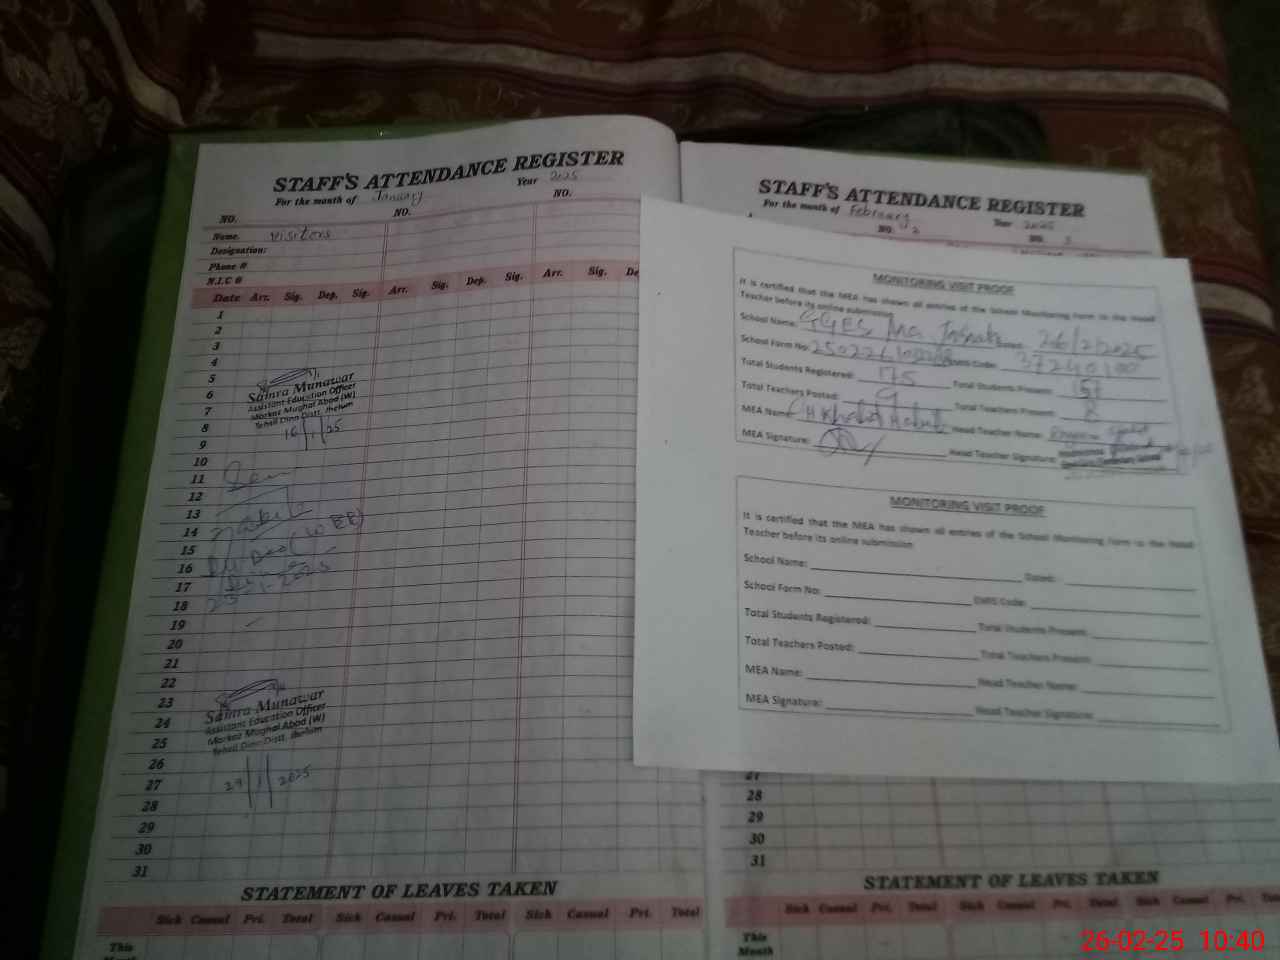 STAFF'S ATTENDANCE REGISTER
For the month of January Year 2025
NO. NO. NO.
Name. visitors
Designation:
Phone #
N.I.C #
Date Arr. Sig. Dep. Sig. Arr. Sig. Dep. Sig. Arr. Sig. De
1
2
3
4
5
6
7
8
9
10
11
12
13
14
15
16
17
18
19
20
21
22
23
24
25
26
27
28
29
30
31
Samra Munawar
Assistant Education Officer
Markaz Mughal Abad (W)
Tehsil Dina Distt. Jhelum
16/1/25
Samra Munawar
Assistant Education Officer
Markaz Mughal Abad (W)
Tehsil Dina Distt. Jhelum
29/1/2025
STATEMENT OF LEAVES TAKEN
Sick Casual Pri. Total Sick Casual Pri. Total Sick Casual Pri. Total
This
Month
STAFF'S ATTENDANCE REGISTER
For the month of February Year 2025
NO. 2 NO. 3
MONITORING VISIT PROOF
It is certified that the MEA has shown all entries of the School Monitoring Form to the Head
Teacher before its online submission
School Name: GGES Dated: 26/2/2025
School Form No: EMIS Code:
Total Students Registered: 175 Total Students Present: 157
Total Teachers Posted: 9 Total Teachers Present: 8
MEA Name: Head Teacher Name:
MEA Signature: Head Teacher Signature:
MONITORING VISIT PROOF
It is certified that the MEA has shown all entries of the School Monitoring Form to the Head
Teacher before its online submission
School Name: Dated:
School Form No: EMIS Code:
Total Students Registered: Total Students Present:
Total Teachers Posted: Total Teachers Present:
MEA Name: Head Teacher Name:
MEA Signature: Head Teacher Signature:
27
28
29
30
31
STATEMENT OF LEAVES TAKEN
Sick Casual Pri. Total Sick Casual Pri. Total Sick Casual Pri.
This
Month
26-02-25 10:40